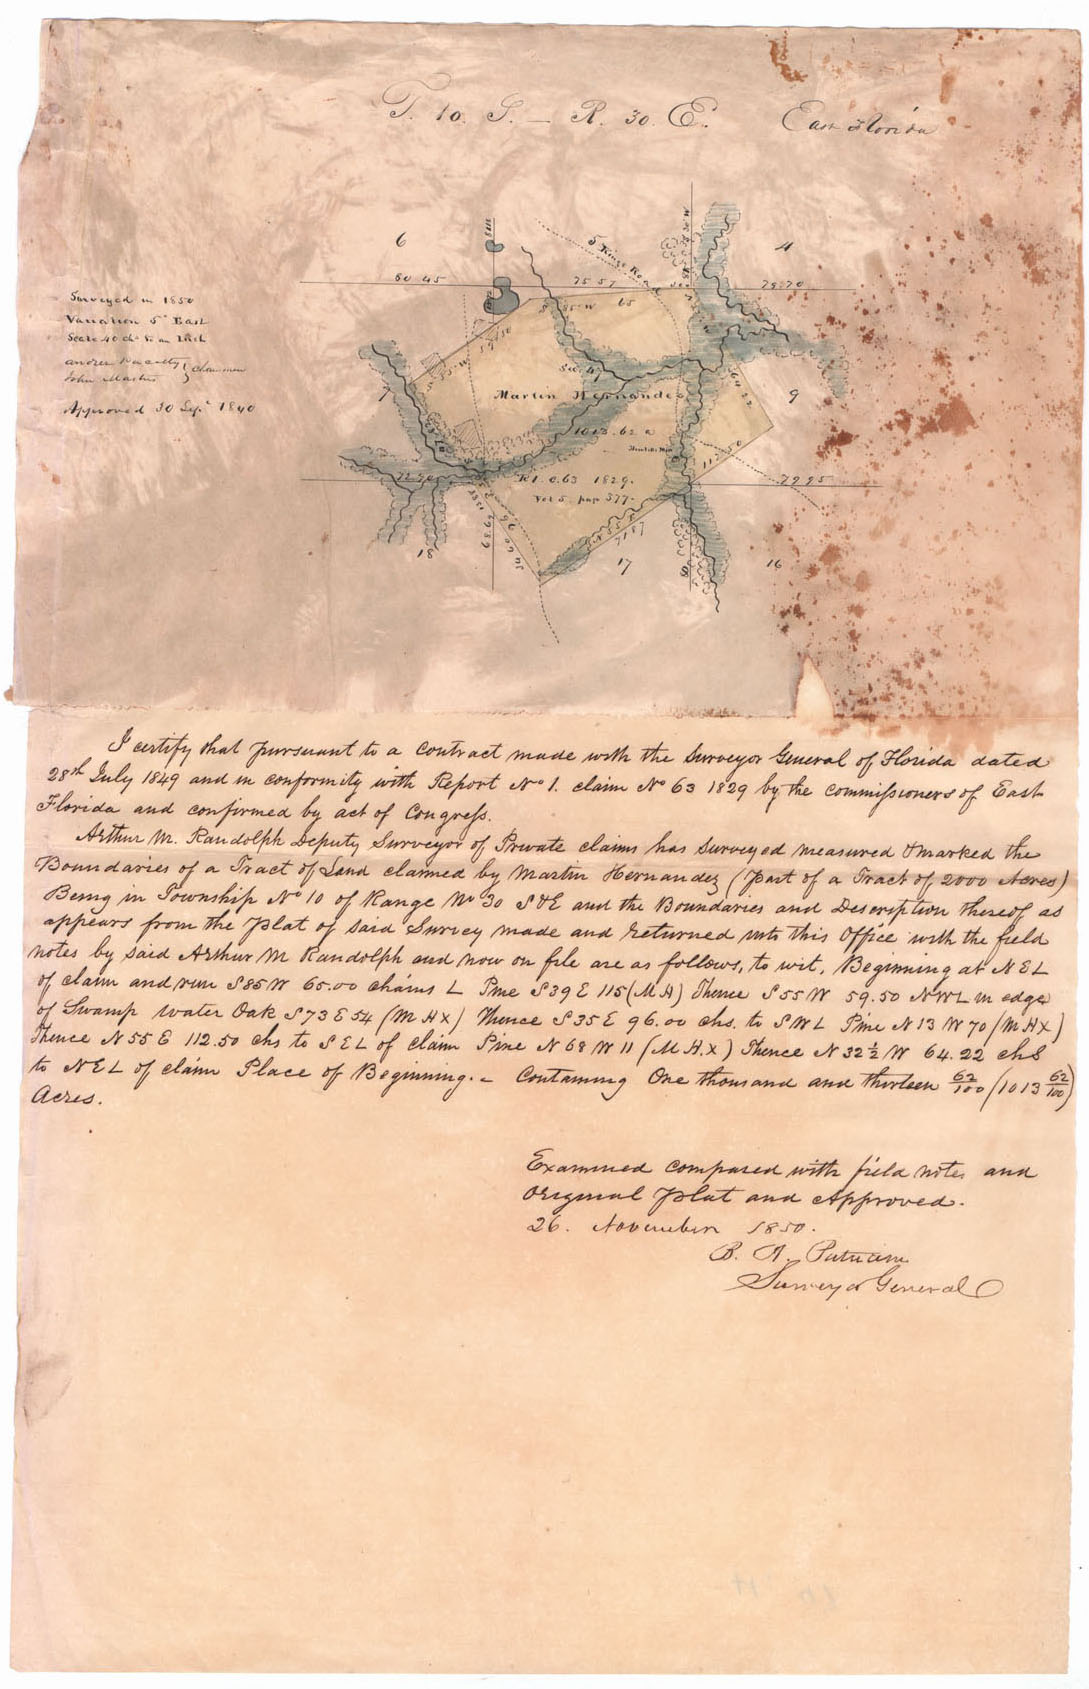 T. 10. S. — R. 30. E. East Florida
6
4
5
Kings Road
80 45
75 57
79 70
S 85 W 65
Surveyed in 1850
Variation 5° East
Scale 40 chs to an Inch
John Masters } Chainmen
Approved 30 Sept 1840
S 55 W 59.50
Sec. 47
7
9
Martin Hernandez
64 22
1013. 62 a
112 50
72 70
R 1. C. 63 1829.
Vol 5. page 577.
79 95
69 68
96 00
N 55 E
71 87
18
17
16
I certify that pursuant to a contract made with the Surveyor General of Florida dated
28th July 1849 and in conformity with Report No 1. claim No 63 1829 by the commissioners of East
Florida and confirmed by act of Congress.
Arthur M. Randolph Deputy Surveyor of Private claims has surveyed measured & marked the
Boundaries of a Tract of Land claimed by Martin Hernandez (part of a Tract of 2000 Acres)
Being in Township No 10 of Range No 30 S & E and the Boundaries and Description thereof as
appears from the Plat of said Survey made and returned unto this Office with the field
notes by said Arthur M Randolph and now on file are as follows, to wit, Beginning at N E L
of claim and run S 85 W 65.00 chains L Pine S 39 E 115 (M H) Thence S 55 W 59.50 N W L in edge
of Swamp water Oak S 73 E 54 (M H X) Thence S 35 E 96.00 chs. to S W L Pine N 13 W 70 (M H X)
Thence N 55 E 112.50 chs to S E L of claim Pine N 68 W 11 (M H. X) Thence N 32 ½ W 64.22 chs
to N E L of claim Place of Beginning. – Containing One thousand and thirteen 62/100 (1013 62/100)
Acres.
Examined compared with field notes and
Original Plat and Approved.
26. November 1850.
B. A. Putnam
Surveyor General